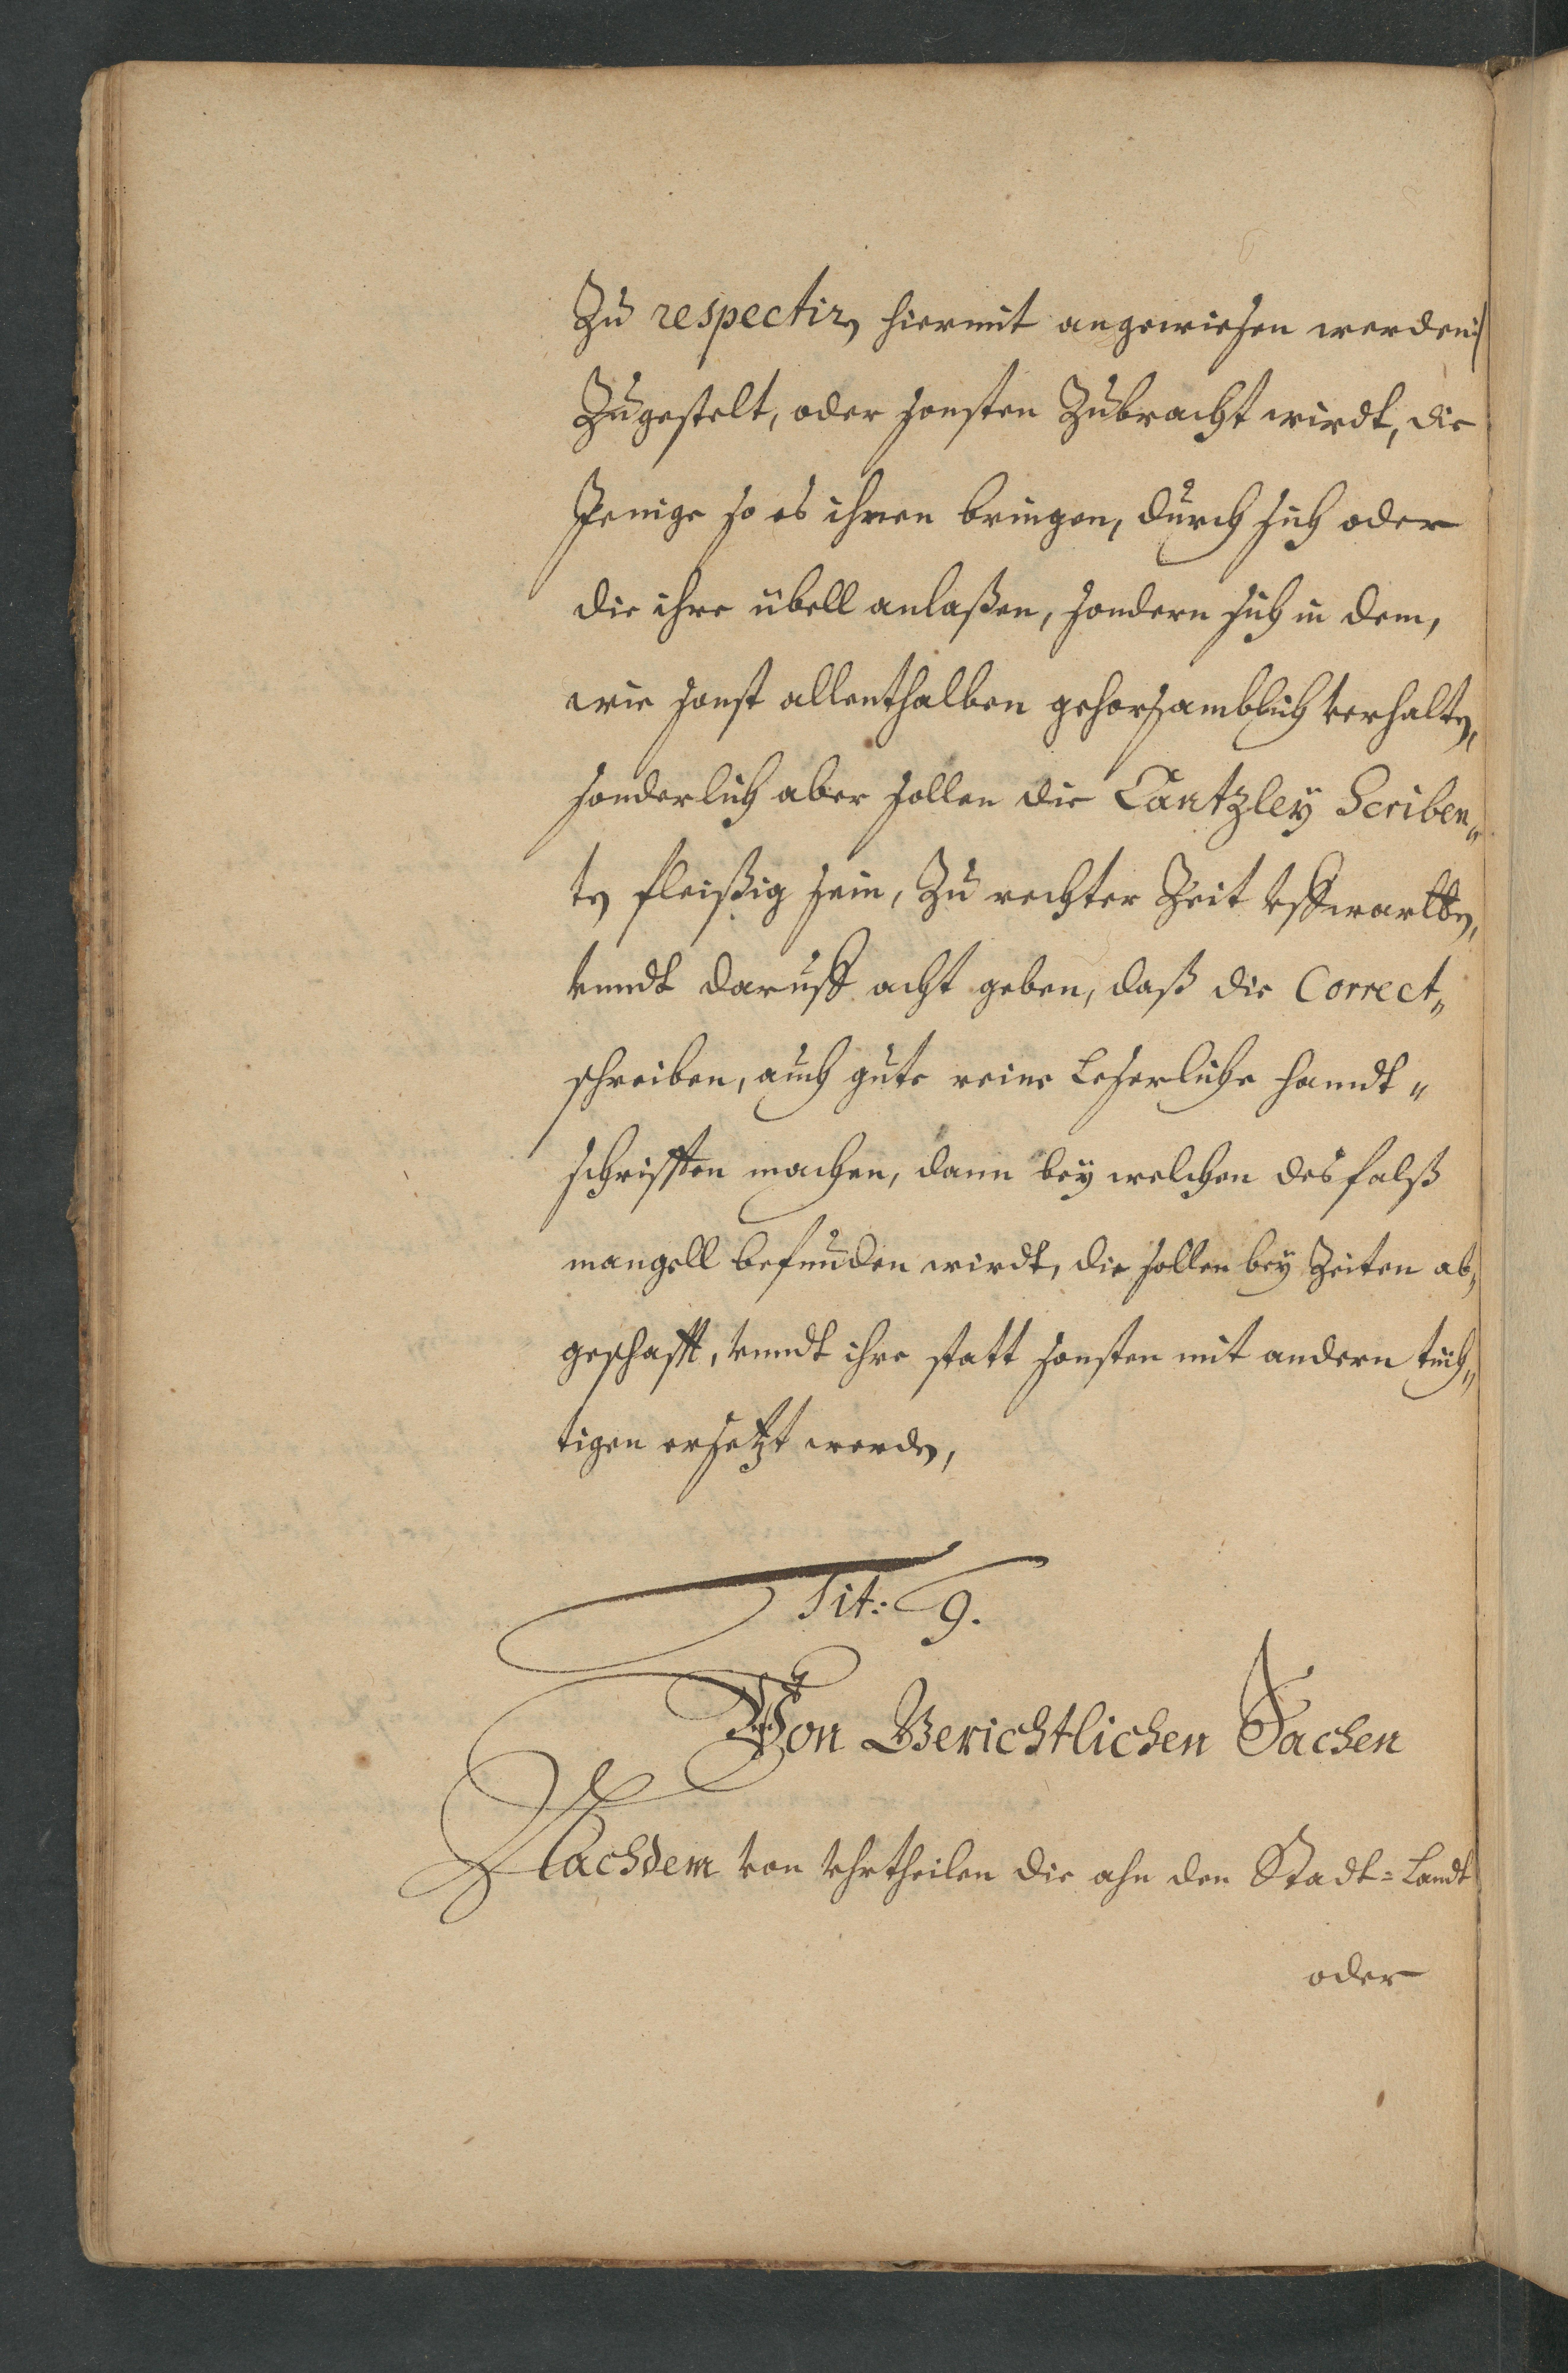 Zu respectirn hiermit angewiesen werden:/
Zugestelt, oder sonsten Zubracht wirdt, die
Jenige so es ihnen bringen, durch sich oder
die ihre übell anlaßen, sondern sich in dem,
wie sonst allenthalben gehorsamblich verhalten,
sonderlich aber sollen die Cantzleÿ Scriben„
ten fleißig sein, Zu rechter Zeit vffwartten,
vnndt daruff acht geben, daß die Correct„
schreiben, auch gute reine Leserliche handt„
schrifften machen, dann beÿ welchen desfalß
mangell befunden wirdt, die sollen beÿ Zeiten ab„
geschafft, vnndt ihre statt sonsten mit andern tüch„
tigen ersetzt werden,
Tit: 9.
Von Gerichtlichen Sachen
Nachdem von vhrtheilen die ahn den Stadt= Landt
oder